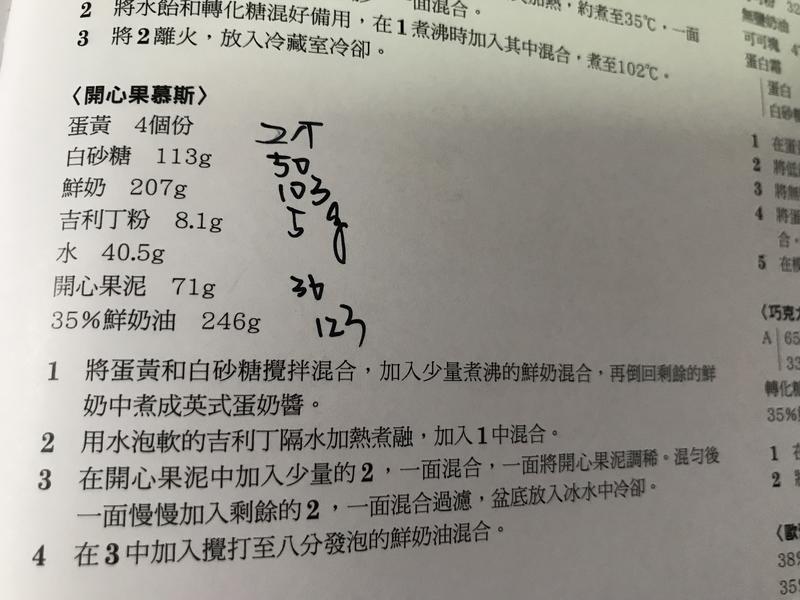 2 將水飴和轉化糖混好備用，在1煮沸時加入其中混合，煮至102℃。
3 將2離火，放入冷藏室冷卻。
〈開心果慕斯〉
蛋黃 4個份 2个
白砂糖 113g 50
鮮奶 207g 103
吉利丁粉 8.1g 5g
水 40.5g
開心果泥 71g 36
35%鮮奶油 246g 123
1 將蛋黃和白砂糖攪拌混合，加入少量煮沸的鮮奶混合，再倒回剩餘的鮮
奶中煮成英式蛋奶醬。
2 用水泡軟的吉利丁隔水加熱煮融，加入1中混合。
3 在開心果泥中加入少量的2，一面混合，一面將開心果泥調稀。混勻後
一面慢慢加入剩餘的2，一面混合過濾，盆底放入冰水中冷卻。
4 在3中加入攪打至八分發泡的鮮奶油混合。
無鹽奶油
可可塊
蛋白霜
蛋白
白砂糖
1 在蛋
2 將低
3 將無
4 將蛋
合，
5 在模
〈巧克力
A 65
33
轉化糖
35%
1 在
2 將
〈歐
38%
35%